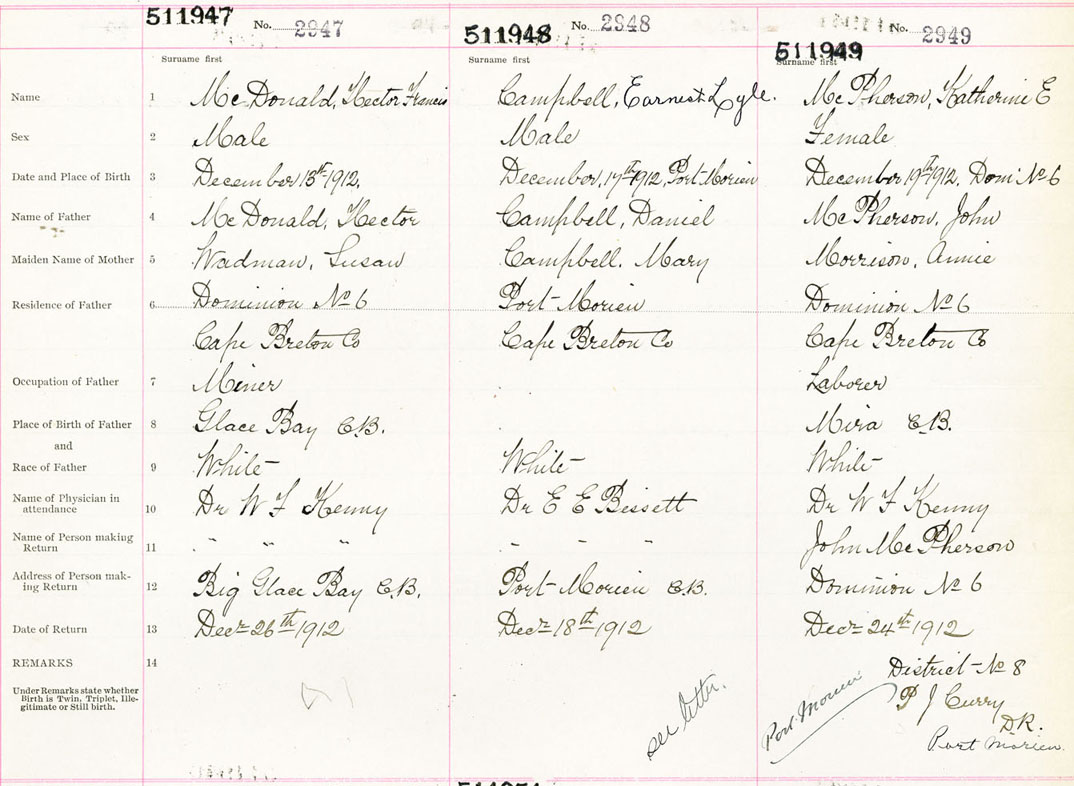 511947 No. 2947 511948 No. 2948 511949 No. 2949
Surname first Surname first Surname first
Name 1 McDonald, Hector Francis Campbell, Earnest Lyle. McPherson, Katherine E
Sex 2 Male Male Female
Date and Place of Birth 3 December 13th 1912. December, 17th 1912, Port Morien December 19th 1912. Dom: No 6
Name of Father 4 McDonald, Hector Campbell, Daniel McPherson, John
Maiden Name of Mother 5 Wadman, Susan Campbell, Mary Morrison, Annie
Residence of Father 6 Dominion No 6 Port Morien Dominion No 6
Cape Breton Co Cape Breton Co Cape Breton Co
Occupation of Father 7 Miner Laborer
Place of Birth of Father 8 Glace Bay C.B. Mira C.B.
and
Race of Father 9 White White White
Name of Physician in
attendance 10 Dr W F Kenny Dr E E Bissett Dr W F Kenny
Name of Person making
Return 11 " " " " " " John McPherson
Address of Person mak-
ing Return 12 Big Glace Bay C.B. Port Morien C.B. Dominion No 6
Date of Return 13 Decr 26th 1912 Decr 18th 1912 Decr 24th 1912
REMARKS 14 District No 8
Under Remarks state whether
Birth is Twin, Triplet, Ille-
gitimate or Still birth.
see letter.
Port Morien
P J Curry
D.R.
Port Morien.